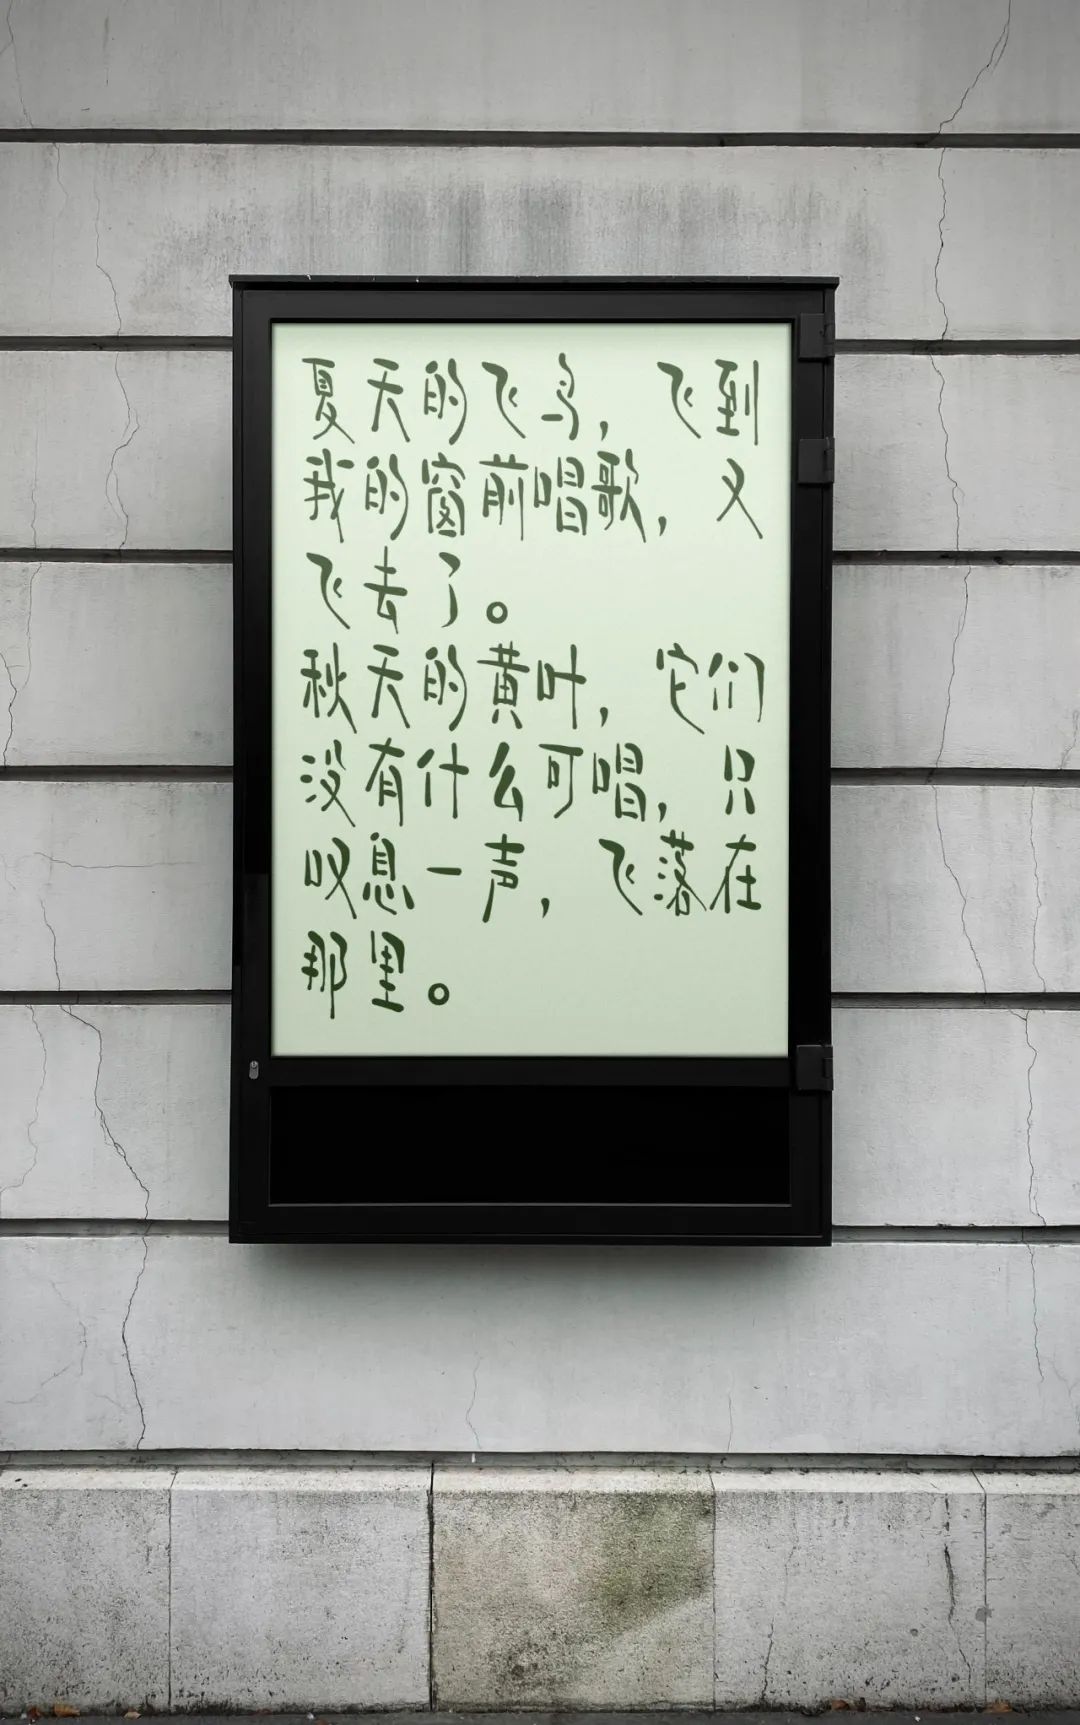 夏天的飞鸟，飞到
我的窗前唱歌，又
飞去了。
秋天的黄叶，它们
没有什么可唱，只
叹息一声，飞落在
那里。